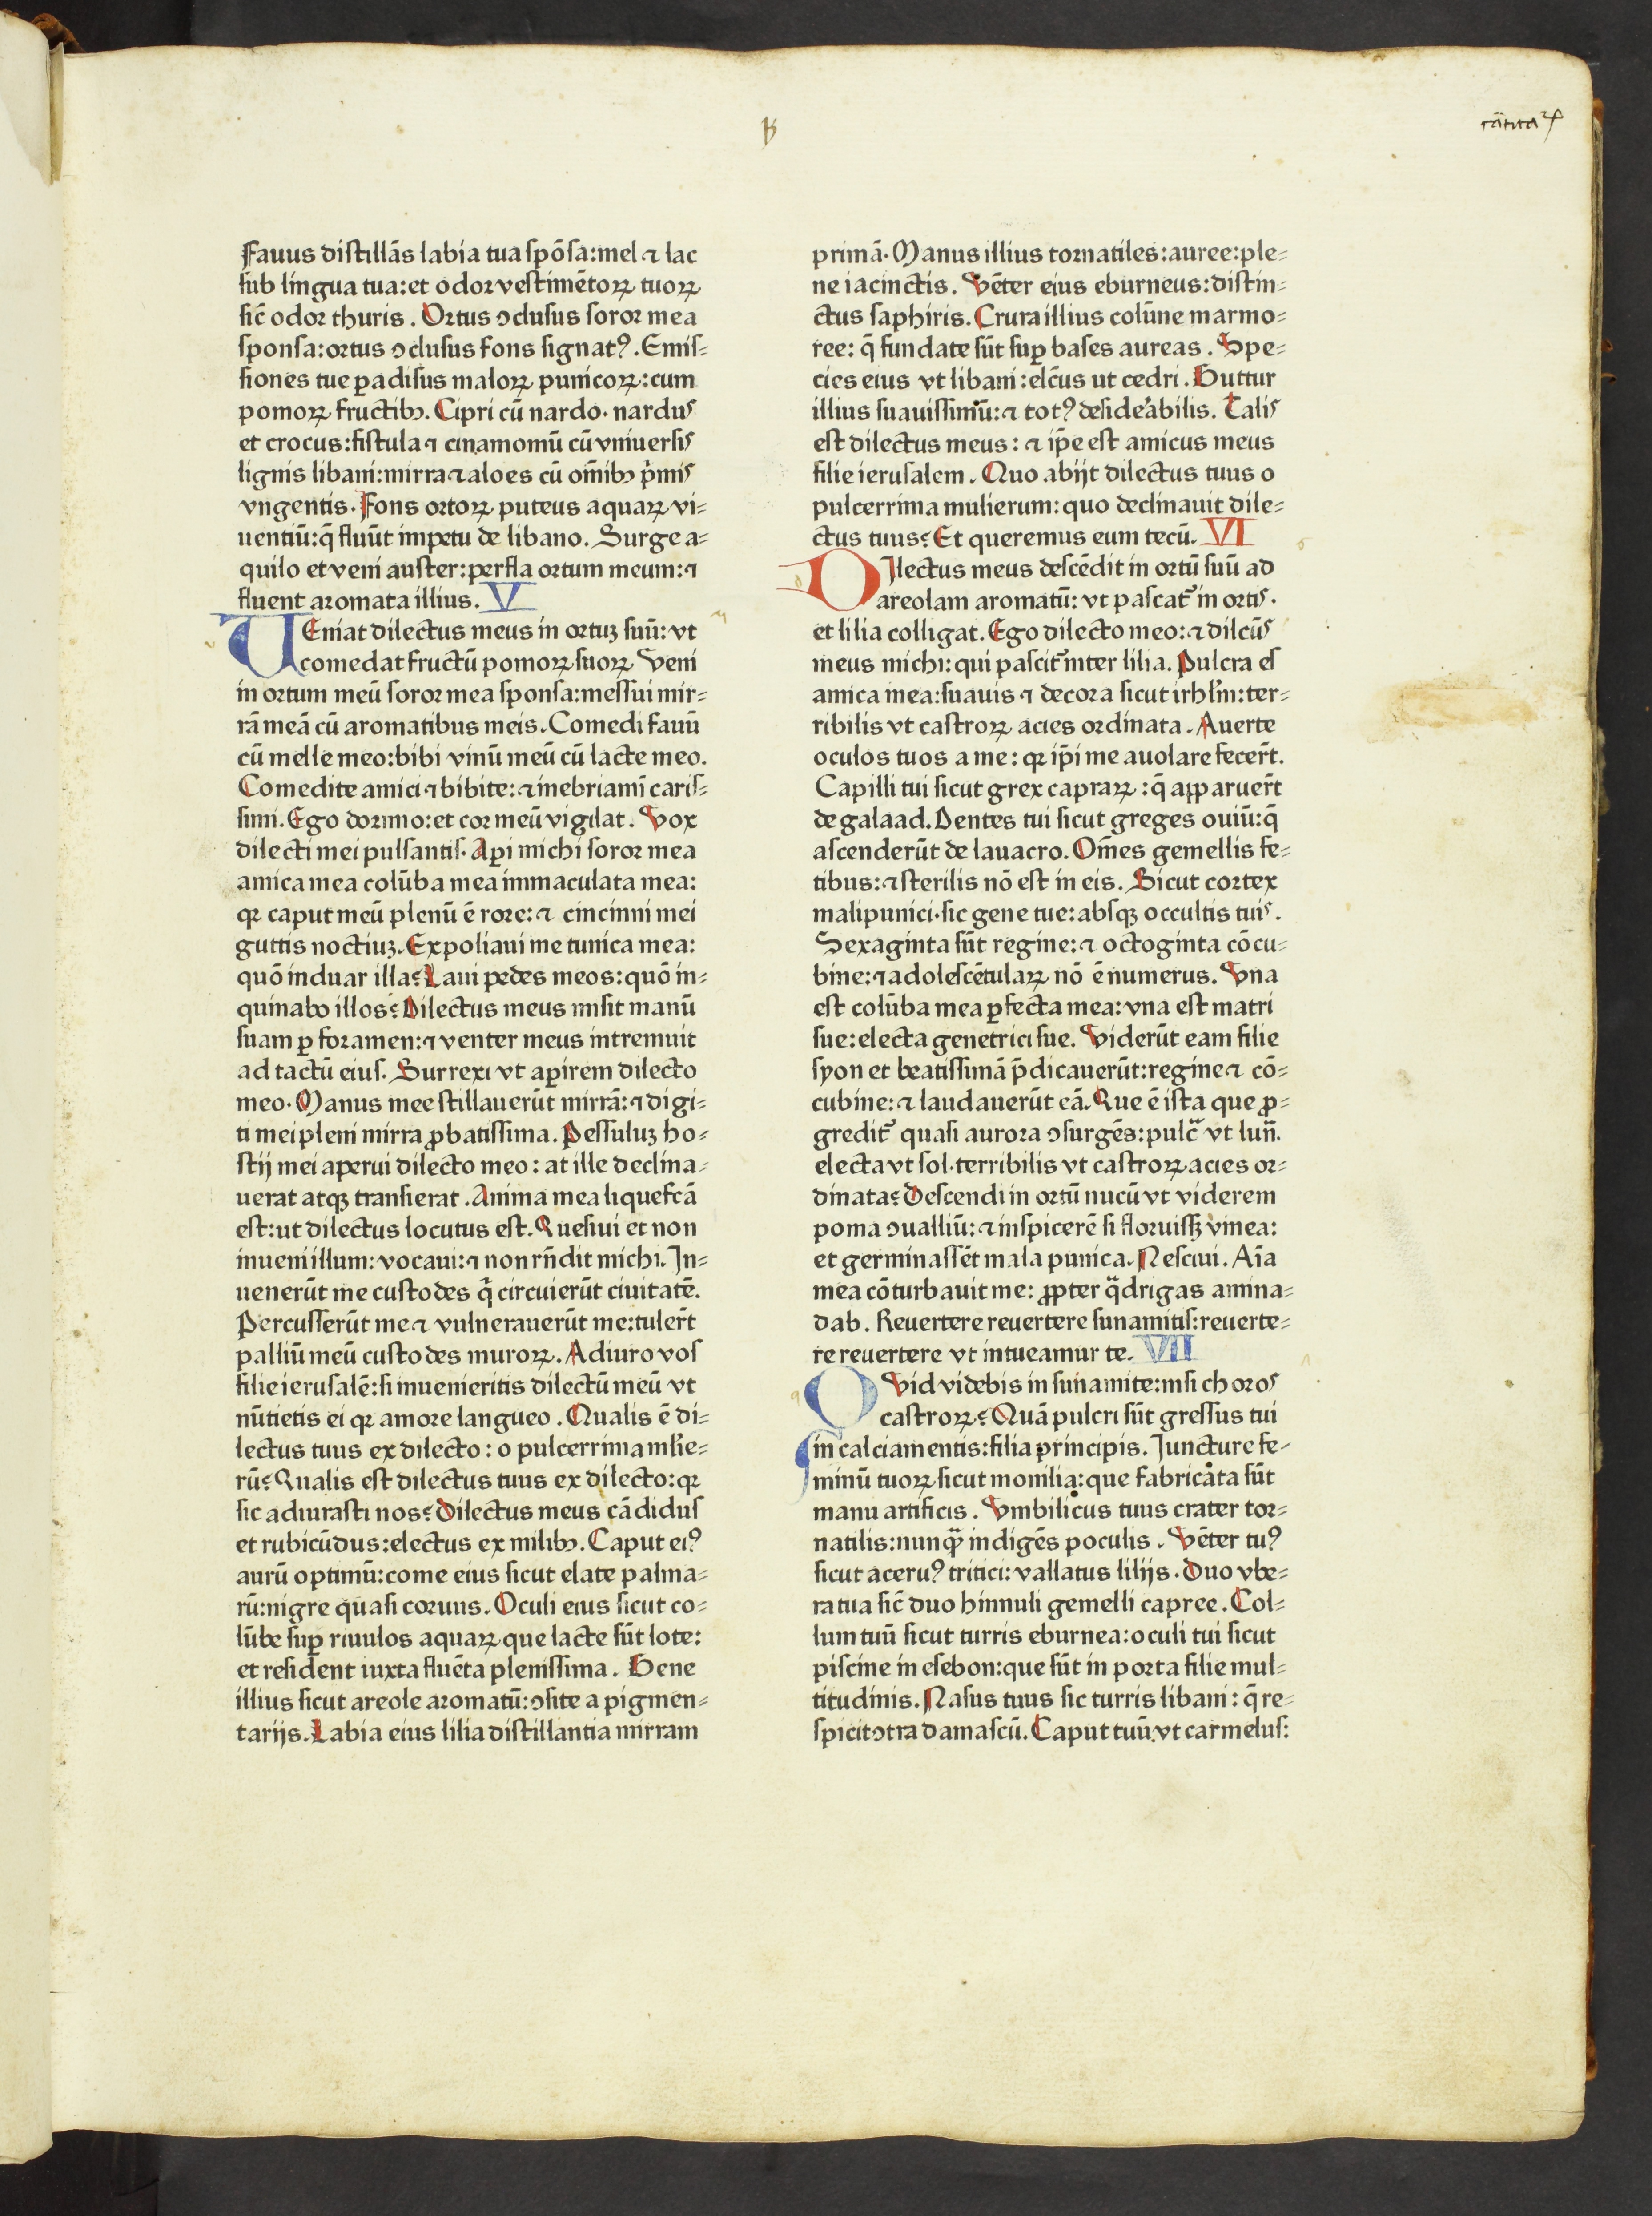 Fauus distillās labia tua spōsa:mel ⁊ lac
sub lingua tua:et odor vestimētoꝝ tuoꝝ
sic̄ odor thuris. Ortus ↄclusus soror mea
sponsa:ortus ↄclusus fons signatꝰ. Emis=
siones tue ꝑadisus maloꝝ punicoꝝ:cum
pomoꝝ fructibꝫ. Cipri cū nardo. nardus
et crocus:fistula ⁊ cinamomū cū vniuersis
lignis libani:mirra ⁊ aloes cū om̄ibꝫ p̄mis
vngentis. Fons ortoꝝ puteus aquaꝝ vi=
uentiū:q̄ fluūt impetu de libano. Surge a=
quilo et veni auster:perfla ortum meum:⁊
fluent aromata illius. V
UEniat dilectus meus in ortuꝫ suū:vt
comedat fructū pomoꝝ suoꝝ Veni
in ortum meū soror mea sponsa:messui mir=
rā meā cū aromatibus meis. Comedi fauū
cū melle meo:bibi vinū meū cū lacte meo.
Comedite amici ⁊ bibite:⁊ inebriamī caris=
simi. Ego dormio:et cor meū vigilat. Vox
dilecti mei pulsantis. Aꝑi michi soror mea
amica mea colūba mea immaculata mea:
qꝛ caput meū plenū ē rore:⁊ cincinni mei
guttis noctiuꝫ. Expoliaui me tunica mea:
quō induar illa? Laui pedes meos:quō in=
quinabo illos? Dilectus meus misit manū
suam ꝑ foramen:⁊ venter meus intremuit
ad tactū eius. Surrexi vt aꝑirem dilecto
meo. Manus mee stillauerūt mirrā:⁊ digi=
ti mei pleni mirra ꝓbatissima. Pessuluꝫ ho=
stij mei aperui dilecto meo: at ille declina=
uerat atqꝫ transierat. Anima mea liquefcā
est:ut dilectus locutus est. Quesiui et non
inueni illum: vocaui:⁊ non rn̄dit michi. In=
uenerūt me custodes q̄ circuierūt ciuitatē.
Percusserūt me ⁊ vulnerauerūt me:tuler̄t
palliū meū custodes muroꝝ. Adiuro vos
filie ierusalē:si inuenieritis dilectū meū vt
nūtietis ei qꝛ amore langueo. Qualis ē di=
lectus tuus ex dilecto: o pulcerrima ml̄ie=
rū? Qualis est dilectus tuus ex dilecto:qꝛ
sic adiurasti nos? Dilectus meus cādidus
et rubicūdus:electus ex milibꝫ. Caput eiꝰ
aurū optimū:come eius sicut elate palma=
rū:nigre quasi coruus. Oculi eius sicut co=
lūbe suꝑ riuulos aquaꝝ que lacte sūt lote:
et resident iuxta fluēta plenissima. Gene
illius sicut areole aromatū:ↄsite a pigmen=
tarijs. Labia eius lilia distillantia mirram
primā. Manus illius tornatiles:auree:ple=
ne iacinctis. Vēter eius eburneus:distin=
ctus saphiris. Crura illius colūne marmo=
ree: q̄ fundate sūt suꝑ bases aureas. Spe=
cies eius vt libani:elc̄us ut cedri. Guttur
illius suauissimū:⁊ totꝰ desiderabilis. Talis
est dilectus meus: ⁊ ip̄e est amicus meus
filie ierusalem. Quo abijt dilectus tuus o
pulcerrima mulierum: quo declinauit dile=
ctus tuus? Et queremus eum tecū. VI
DIlectus meus descēdit in ortū suū ad
areolam aromatū: vt pascat᷑ in ortis.
et lilia colligat. Ego dilecto meo:⁊ dilcūs
meus michi: qui pascit᷑ inter lilia. Pulcra es
amica mea:suauis ⁊ decora sicut irhl̄m:ter=
ribilis vt castroꝝ acies ordinata. Auerte
oculos tuos a me: qꝛ ip̄i me auolare fecer̄t.
Capilli tui sicut grex capraꝝ:q̄ apparuer̄t
de galaad. Dentes tui sicut greges ouiū:q̄
ascenderūt de lauacro. Om̄es gemellis fe=
tibus:⁊ sterilis nō est in eis. Sicut cortex
malipunici.sic gene tue:absqꝫ occultis tuis.
Sexaginta sūt regine:⁊ octoginta cōcu=
bine:⁊ adolescētulaꝝ nō ē numerus. Vna
est colūba mea ꝑfecta mea: vna est matri
sue:electa genetrici sue. Viderūt eam filie
syon et beatissimā p̄dicauerūt:regine ⁊ cō=
cubine:⁊ laudauerūt eā. Que ē ista que ꝓ=
gredit᷑ quasi aurora ↄsurgēs:pulc̄ vt lun̄.
electa vt sol.terribilis vt castroꝝ acies or=
dinata? Descendi in ortū nucū vt viderem
poma ↄualliū:⁊ inspicerē si floruissꝫ vinea:
et germinassēt mala punica. Nesciui. Aīa
mea cōturbauit me: ꝓpter q̄drigas amina=
dab. Reuertere reuertere sunamitis:reuerte=
re reuertere vt intueamur te. VII
QVid videbis in sunamite:nisi choros
castroꝝ? Quā pulcri sūt gressus tui
in calciamentis:filia principis. Iuncture fe=
minū tuoꝝ sicut monilia:que fabricata sūt
manu artificis. Vmbilicus tuus crater tor=
natilis:nunq̄ indigēs poculis. Vēter tuꝰ
sicut aceruꝰ tritici: vallatus lilijs. Duo vbe=
ra tua sic̄ duo hinnuli gemelli capree. Col=
lum tuū sicut turris eburnea:oculi tui sicut
piscine in esebon:que sūt in porta filie mul=
titudinis. Nasus tuus sic turris libani: q̄ re=
spicit ↄtra damascū. Caput tuū vt carmelus: